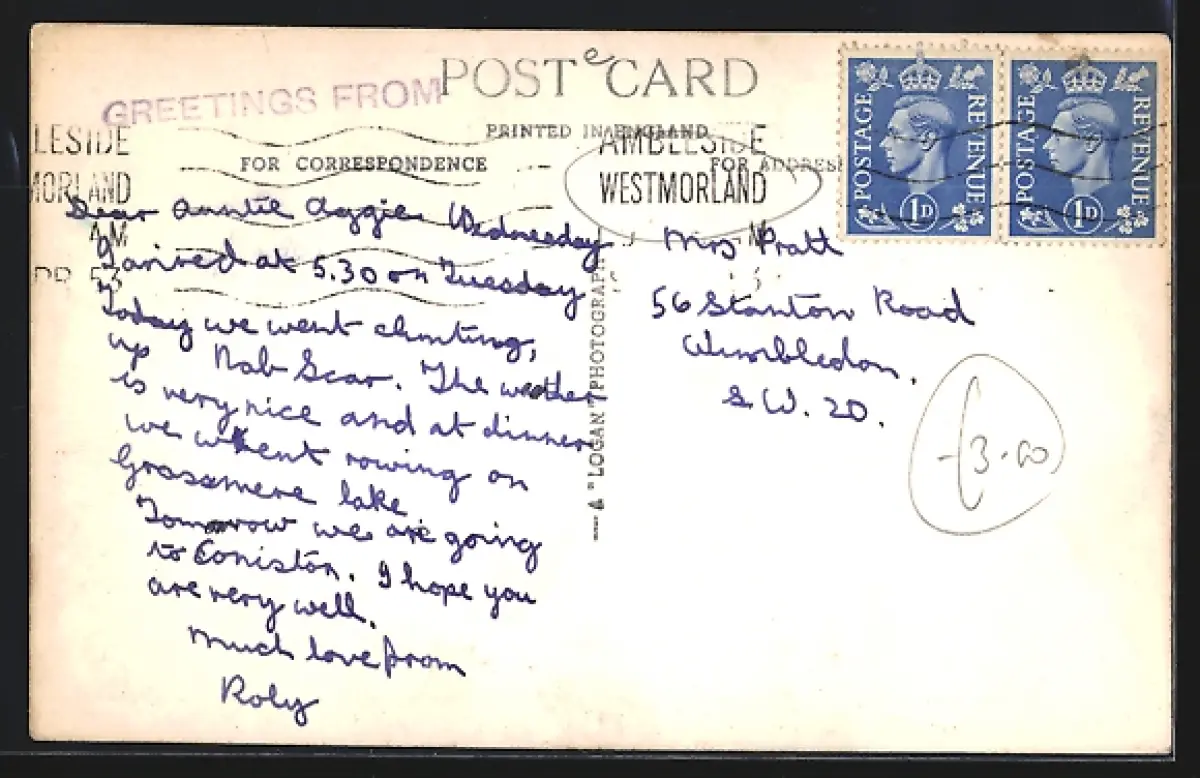 GREETINGS FROM
POST CARD
PRINTED IN ENGLAND
FOR CORRESPONDENCE
FOR ADDRESS
LESIDE
MORLAND
AM
PR 53
AMBLESIDE
WESTMORLAND
POSTAGE REVENUE
1D
POSTAGE REVENUE
1D
Dear Auntie Aggie Wednesday
I arrived at 5.30 on Tuesday
Today we went climbing,
up Nab Scar. The weather
is very nice and at dinner
we went rowing on
Grassmere lake
Tomorrow we are going
to Coniston. I hope you
are very well.
Much love from
Roly
A "LOGAN" PHOTOGRAPH
Mrs Pratt
56 Stanton Road
Wimbledon.
S.W. 20.